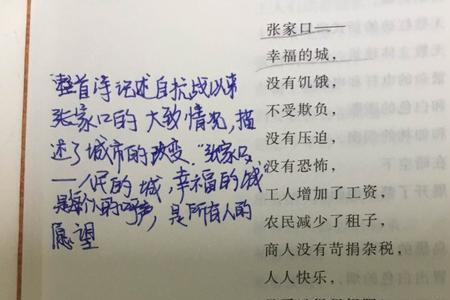 整首诗记述自抗战以来
张家口的大致情况,描
述了城市的改变."张家口
——人民的城,幸福的城
是每个人的呼声,是所有人的
愿望
张家口——
幸福的城,
没有饥饿,
不受欺负,
没有压迫,
没有恐怖,
工人增加了工资,
农民减少了租子,
商人没有苛捐杂税,
人人快乐,